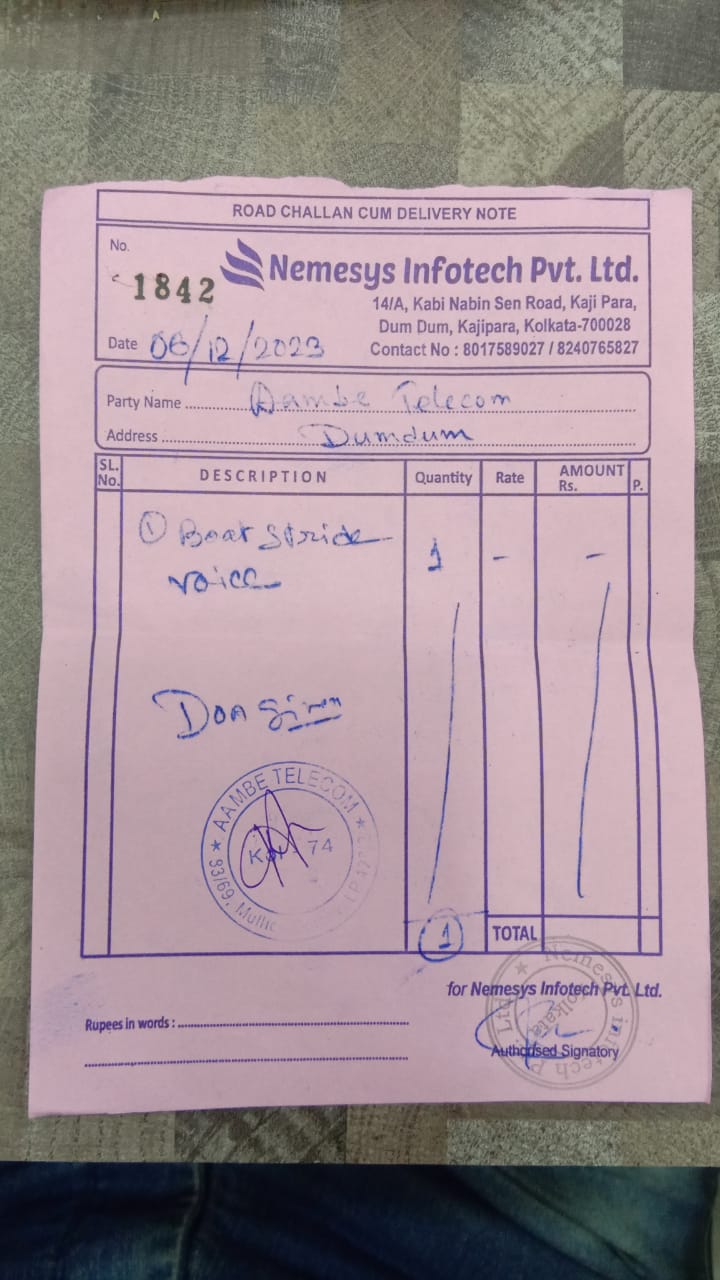 ROAD CHALLAN CUM DELIVERY NOTE
No.
1842
Nemesys Infotech Pvt. Ltd.
14/A, Kabi Nabin Sen Road, Kaji Para,
Dum Dum, Kajipara, Kolkata-700028
Date 06/12/2023
Contact No : 8017589027 / 8240765827
Party Name Aambe Telecom
Address Dumdum
SL. No. DESCRIPTION Quantity Rate AMOUNT Rs. P.
① Boat Stride 1 - -
Voice
Doa Given
★ AAMBE TELECOM ★
74
93/69, Mullic
1 TOTAL
for Nemesys Infotech Pvt. Ltd.
★ Nemesys Infotech Pvt Ltd
Kolkata
Rupees in words :
Authorised Signatory